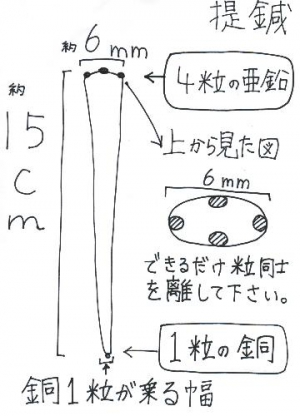 提鍼
約6mm
4粒の亜鉛
約15cm
上から見た図
6mm
できるだけ粒同士
を離して下さい。
1粒の銅
銅1粒が乗る幅